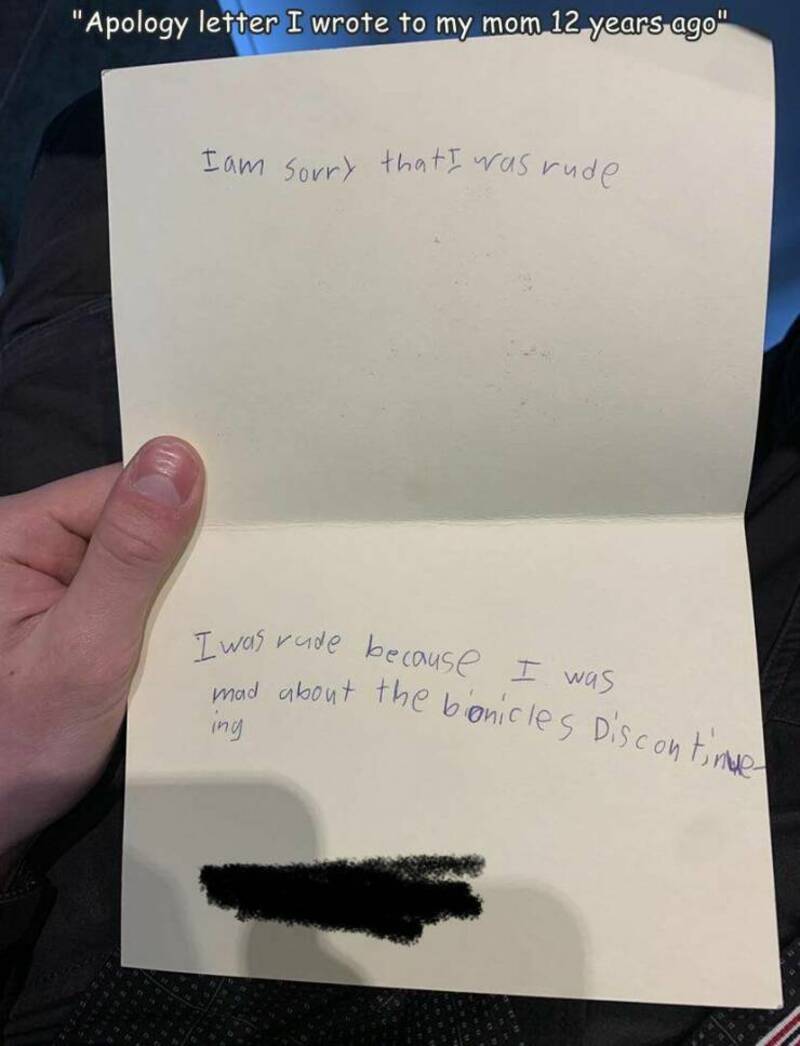 "Apology letter I wrote to my mom 12 years ago"
I am sorry that I was rude
I was rude because I was
mad about the bionicles Discontinue-
ing